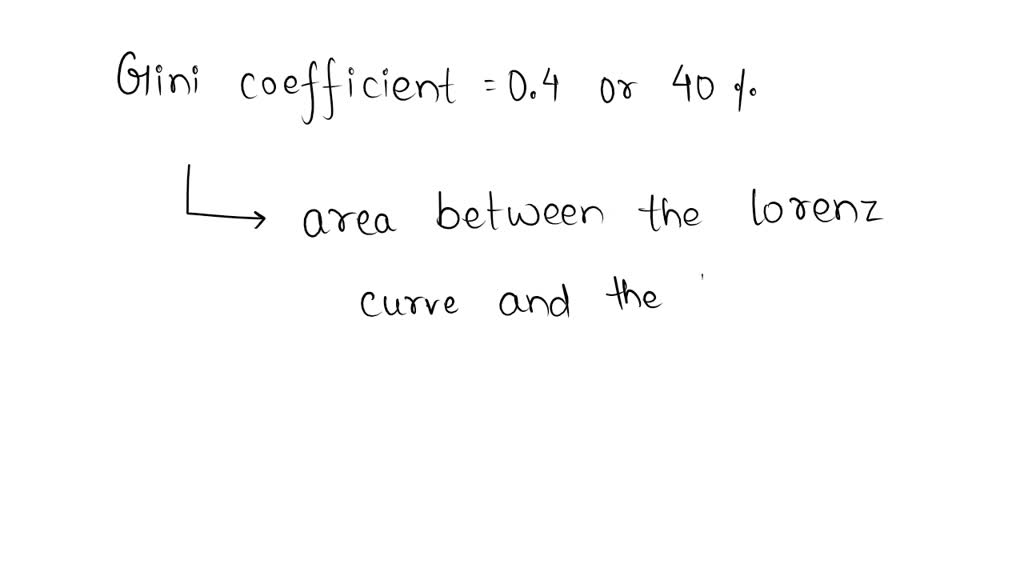 Gini coefficient = 0.4 or 40 %.
area between the lorenz
curve and the